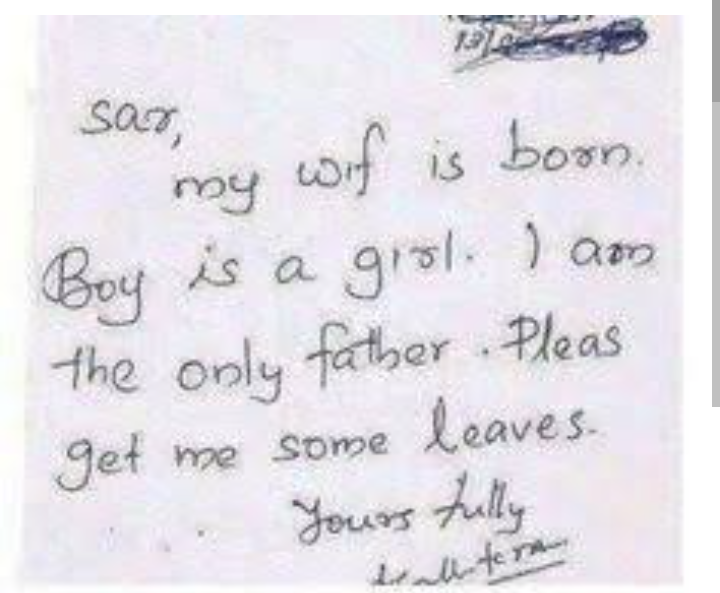 sar,
my wif is born.
Boy is a girl. I am
the only father. Pleas
get me some leaves.
Yours fully